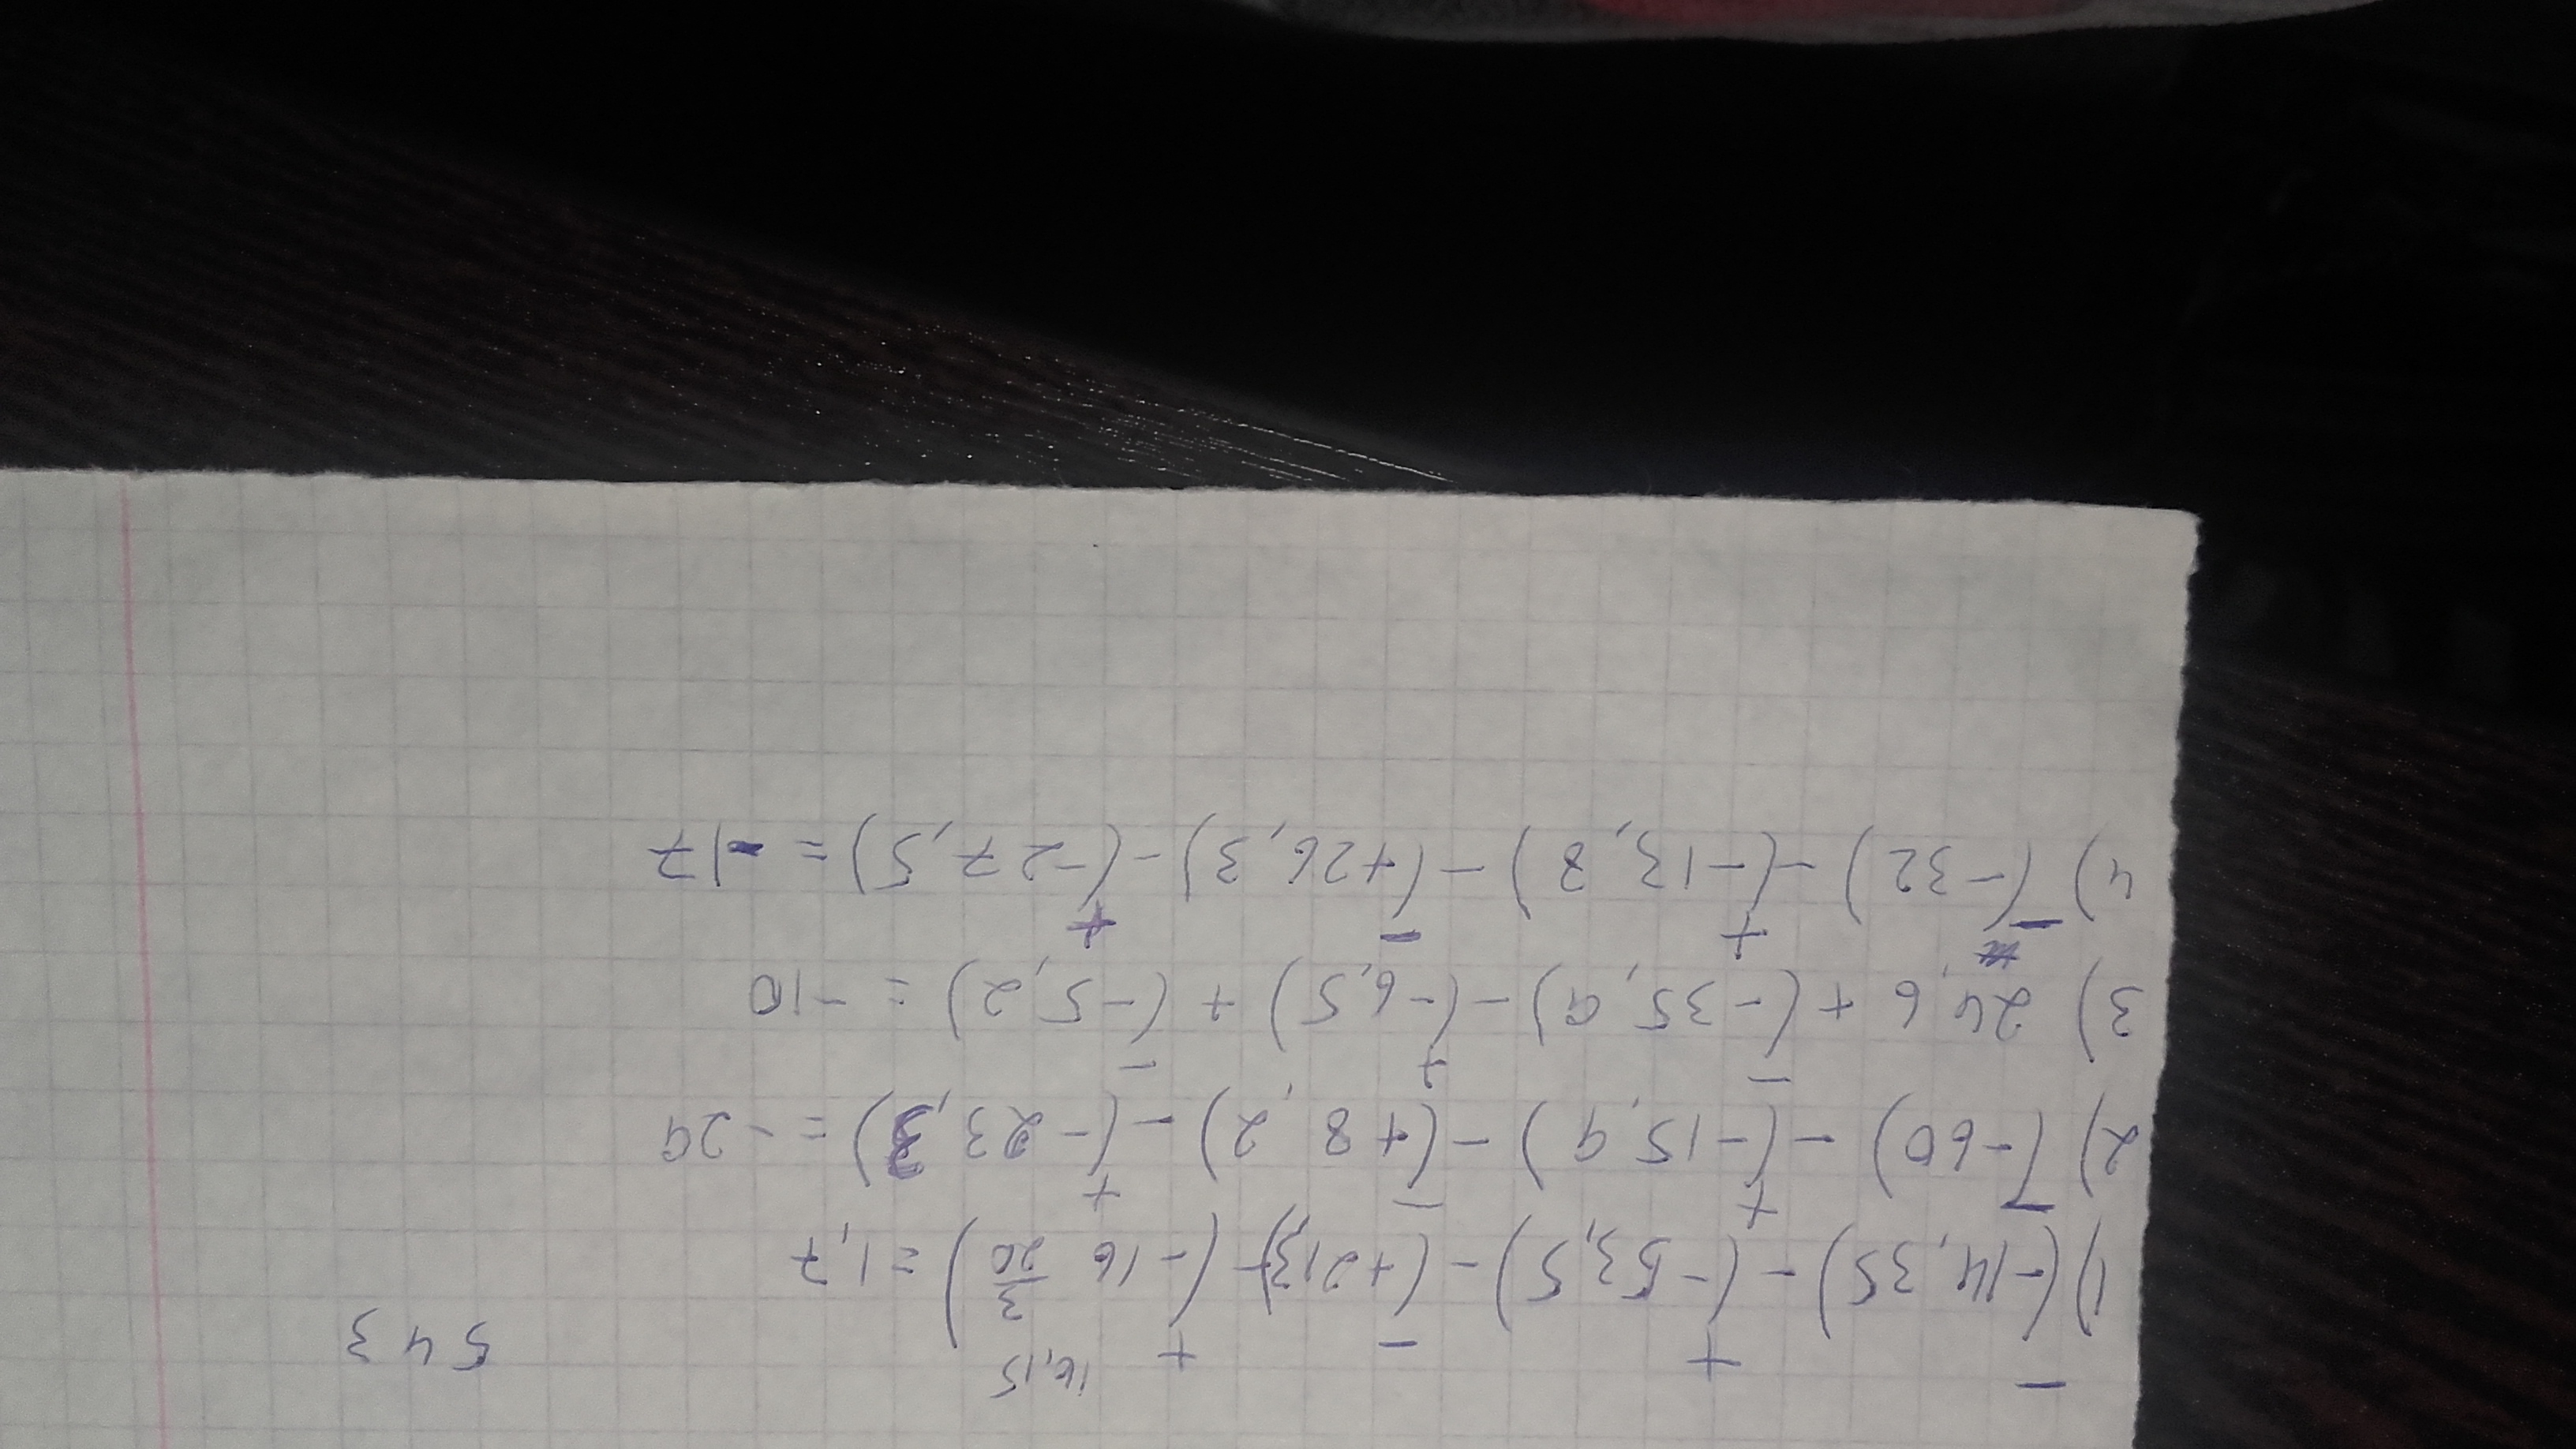 543
16,15
- + - +
1) (-14,35) - (-53,5) - (+213) - (-16 3/20) = 1,7
- + - +
2) (-60) - (-15,9) - (+8,2) - (-23,3) = -29
- + -
3) 24,6 + (-35,9) - (-6,5) + (-5,2) = -10
- + - +
4) (-32) - (-13,8) - (+26,3) - (-27,5) = -17